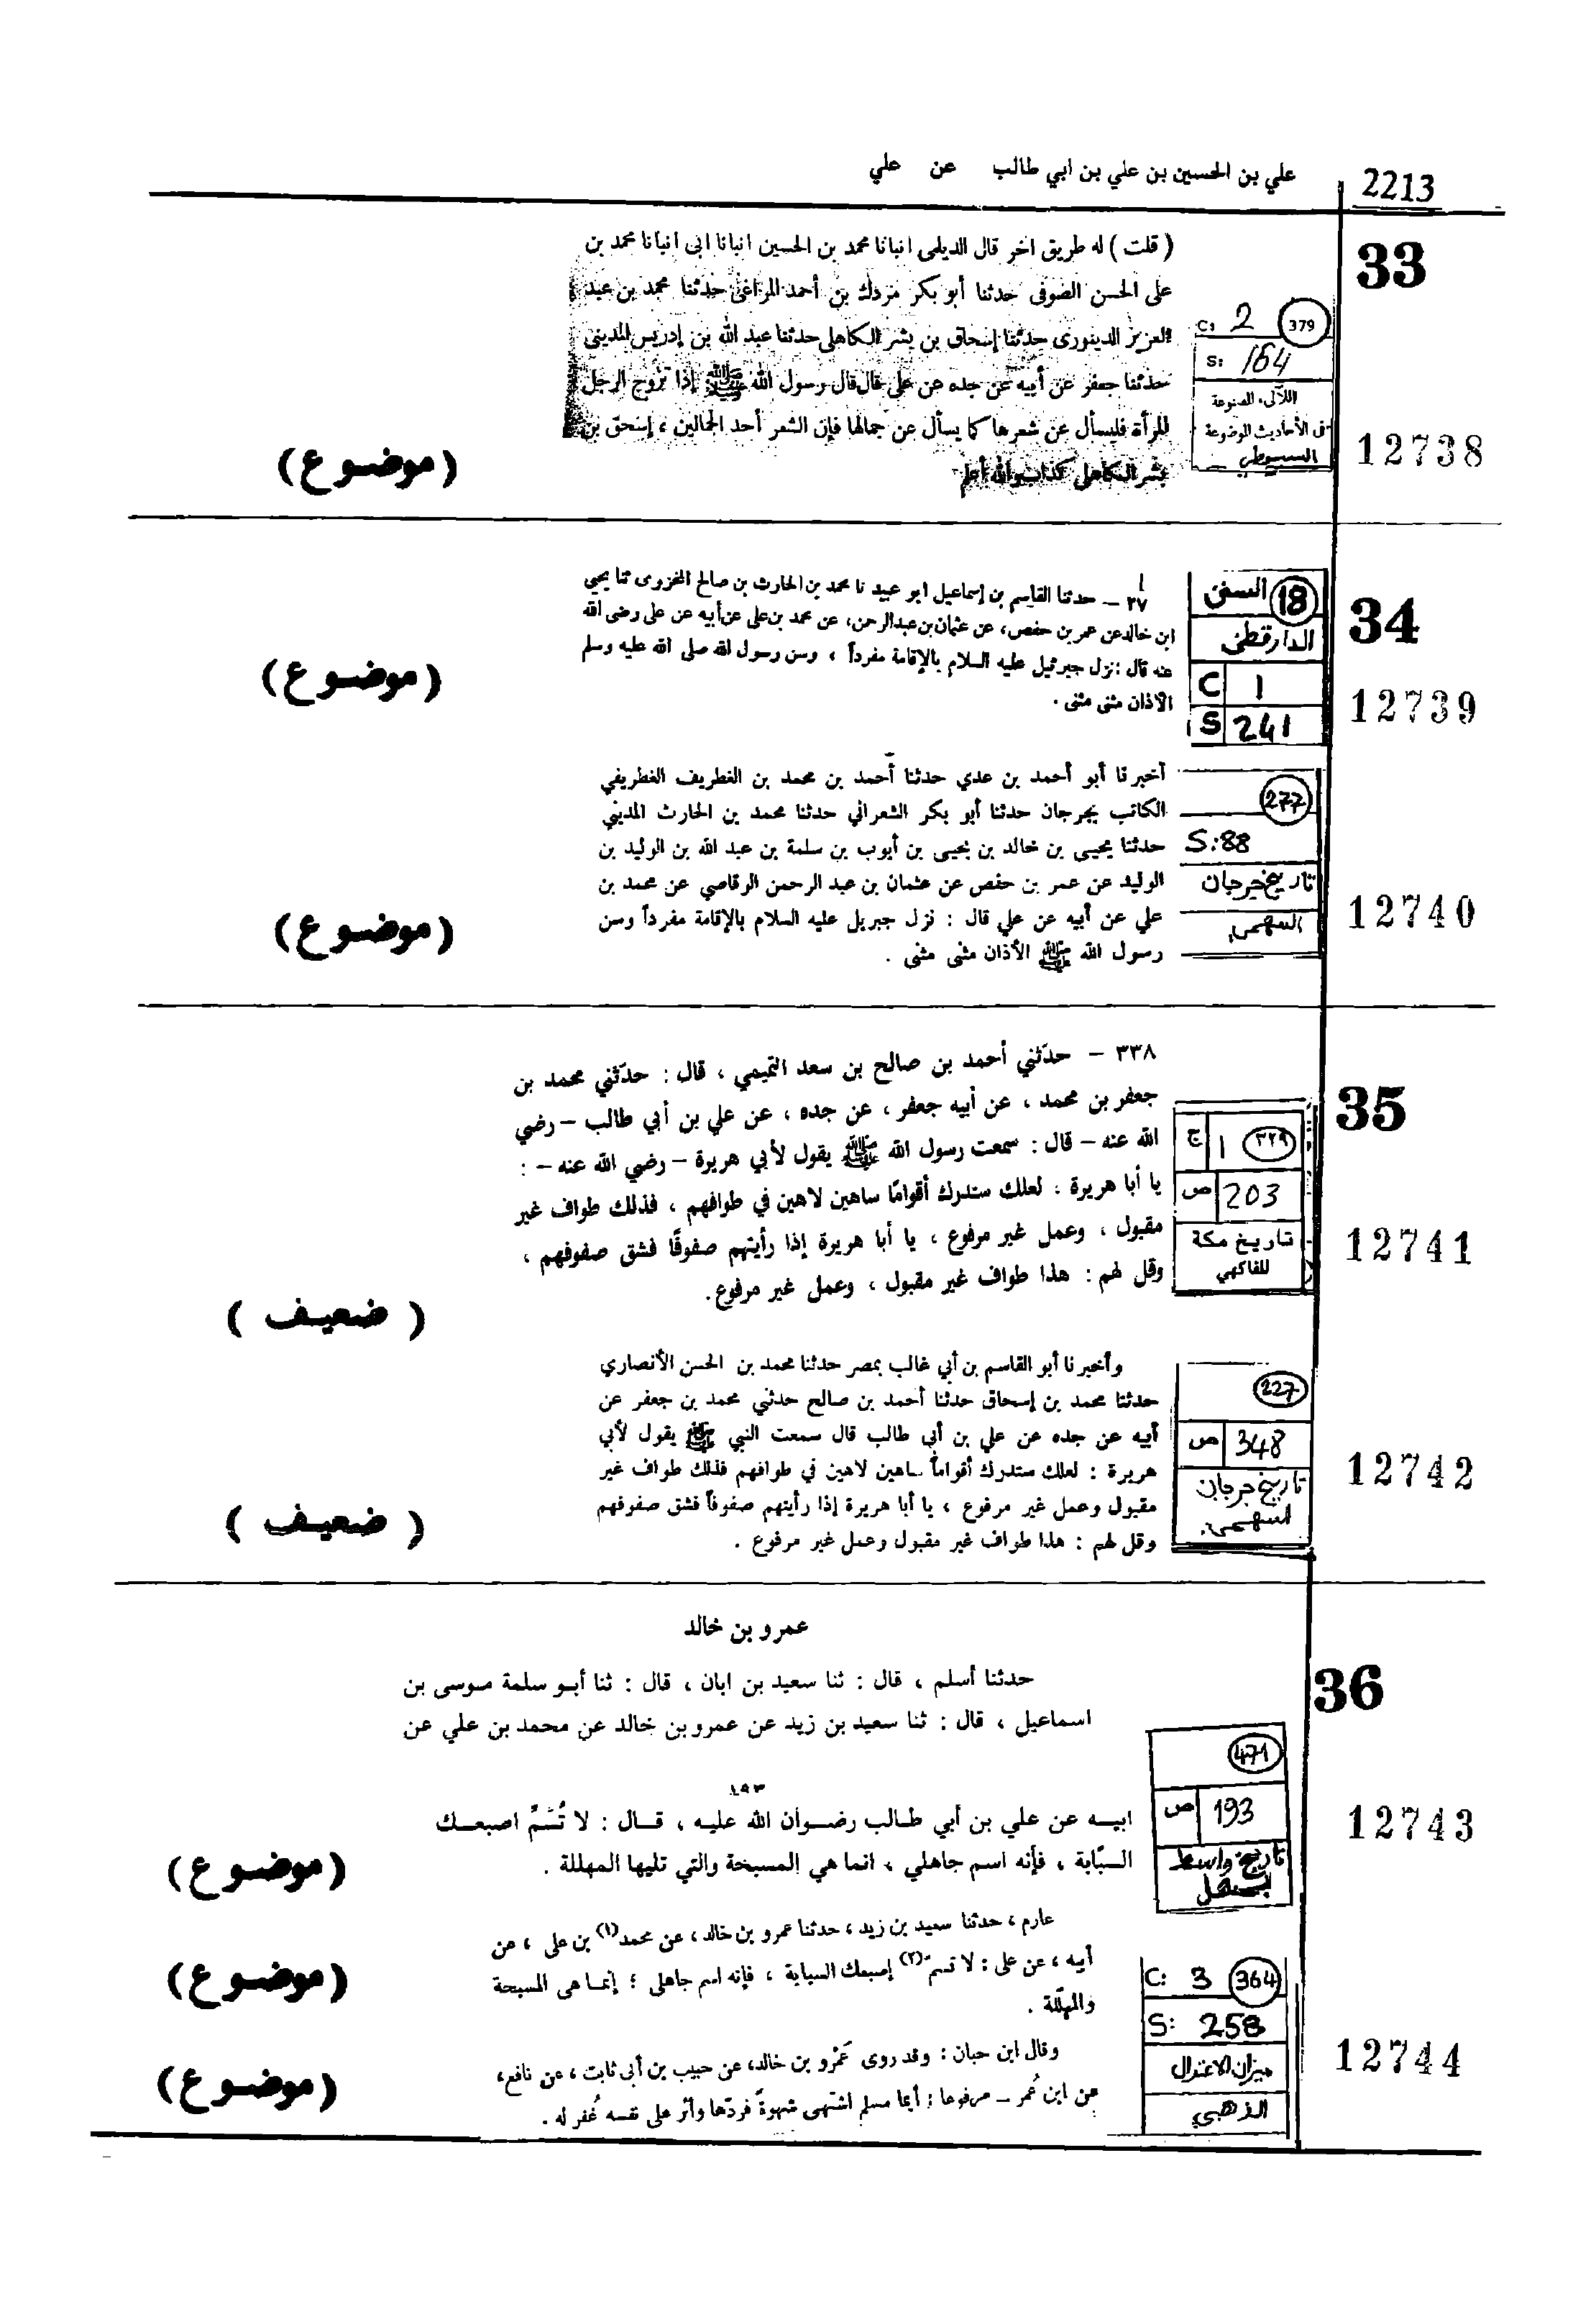 2213
علي بن الحسين بن علي بن ابي طالب عن علي
33
( قلت ) له طريق اخر قال الديلمى انبانا محمد بن الحسين انبانا ابى انبانا محمد بن
على الحسن الصوفى حدثنا أبو بكر مزدك بن أحمد المراغى حدثنا محمد بن عبد
العزيز الدينورى حدثنا إسحاق بن بشر الكاهلى حدثنا عبد الله بن إدريس المدينى
حدثنا جعفر عن أبيه عن جده عن على قال قال رسول الله ﷺ إذا تزوج الرجل
المرأة فليسأل عن شعرها كما يسأل عن جمالها فإن الشعر أحد الجمالين ، إسحق بن
بشر الكاهلى كذاب والله أعلم
C: 2 379
S: 164
اللآلىء المصنوعة
فى الأحاديث الموضوعة
السيوطي
12738
(موضوع)
34
٣٧ – حدثنا القاسم بن إسماعيل ابو عبيد نا محمد بن الحارث بن صالح المخزوى ثنا يحيى
ابن خالد عن عمر بن حفص، عن عثمان بن عبد الرحمن، عن محمد بن على عن أبيه عن على رضى الله
عنه قال : نزل جبرئيل عليه السلام بالإقامة مفرداً ، وسن رسول الله صلى الله عليه وسلم
الأذان مثنى مثنى .
السنن 18
الدارقطنى
C 1
S 241
12739
(موضوع)
أخبرنا أبو أحمد بن عدي حدثنا أحمد بن محمد بن الغطريف الغطريفي
الكاتب بجرجان حدثنا أبو بكر الشعراني حدثنا محمد بن الحارث المديني
حدثنا يحيى بن خالد بن يحيى بن أيوب بن سلمة بن عبد الله بن الوليد بن
الوليد عن عمر بن حفص عن عثمان بن عبد الرحمن الوقاصي عن محمد بن
علي عن أبيه عن علي قال : نزل جبريل عليه السلام بالإقامة مفرداً وسن
رسول الله ﷺ الأذان مثنى مثنى .
277
S:88
تاريخ جرجان
السهمي
12740
(موضوع)
35
٣٣٨ – حدّثني أحمد بن صالح بن سعد التميمي ، قال : حدّثني محمد بن
جعفر بن محمد ، عن أبيه جعفر ، عن جده ، عن علي بن أبي طالب – رضي
الله عنه – قال : سمعت رسول الله ﷺ يقول لأبي هريرة – رضي الله عنه – :
يا أبا هريرة ، لعلك ستدرك أقوامًا ساهين لاهين في طوافهم ، فذلك طواف غير
مقبول ، وعمل غير مرفوع ، يا أبا هريرة إذا رأيتهم صفوفًا فشق صفوفهم ،
وقل لهم : هذا طواف غير مقبول ، وعمل غير مرفوع.
ج 1 ٣٢٩
ص 203
تاريخ مكة
للفاكهي
12741
( ضعيف )
وأخبرنا أبو القاسم بن أبي غالب بمصر حدثنا محمد بن الحسن الأنصاري
حدثنا محمد بن إسحاق حدثنا أحمد بن صالح حدثني محمد بن جعفر عن
أبيه عن جده عن علي بن أبي طالب قال سمعت النبي ﷺ يقول لأبي
هريرة : لعلك ستدرك أقواماً ساهين لاهين في طوافهم فذلك طواف غير
مقبول وعمل غير مرفوع ، يا أبا هريرة إذا رأيتهم صفوفاً فشق صفوفهم
وقل لهم : هذا طواف غير مقبول وعمل غير مرفوع .
227
ص 348
تاريخ جرجان
السهمي
12742
( ضعيف )
36
عمرو بن خالد
حدثنا أسلم ، قال : ثنا سعيد بن ابان ، قال : ثنا أبو سلمة موسى بن
اسماعيل ، قال : ثنا سعيد بن زيد عن عمرو بن خالد عن محمد بن علي عن
١٩٣
ابيه عن علي بن أبي طالب رضوان الله عليه ، قال : لا تُسَمِّ اصبعك
السبّابة ، فأنه اسم جاهلي ، انما هي المسبحة والتي تليها المهللة .
471
ص 193
تاريخ واسط
لبحشل
12743
(موضوع)
عارم ، حدثنا سعيد بن زيد ، حدثنا عمرو بن خالد ، عن محمد(١) بن على ، عن
أبيه ، عن على : لا تسم(٢) إصبعك السبابة ، فإنه اسم جاهلى ؛ إنما هى المسبحة
والمهلّلة .
(موضوع)
وقال ابن حبان : وقد روى عَمْرو بن خالد، عن حبيب بن أبى ثابت ، عن نافع،
عن ابن عُمر – مرفوعا : أيما مسلم اشتهى شهوةً فردّها وآثر على نفسه غُفر له .
C: 3 364
S: 258
ميزان الاعتدال
الذهبي
12744
(موضوع)